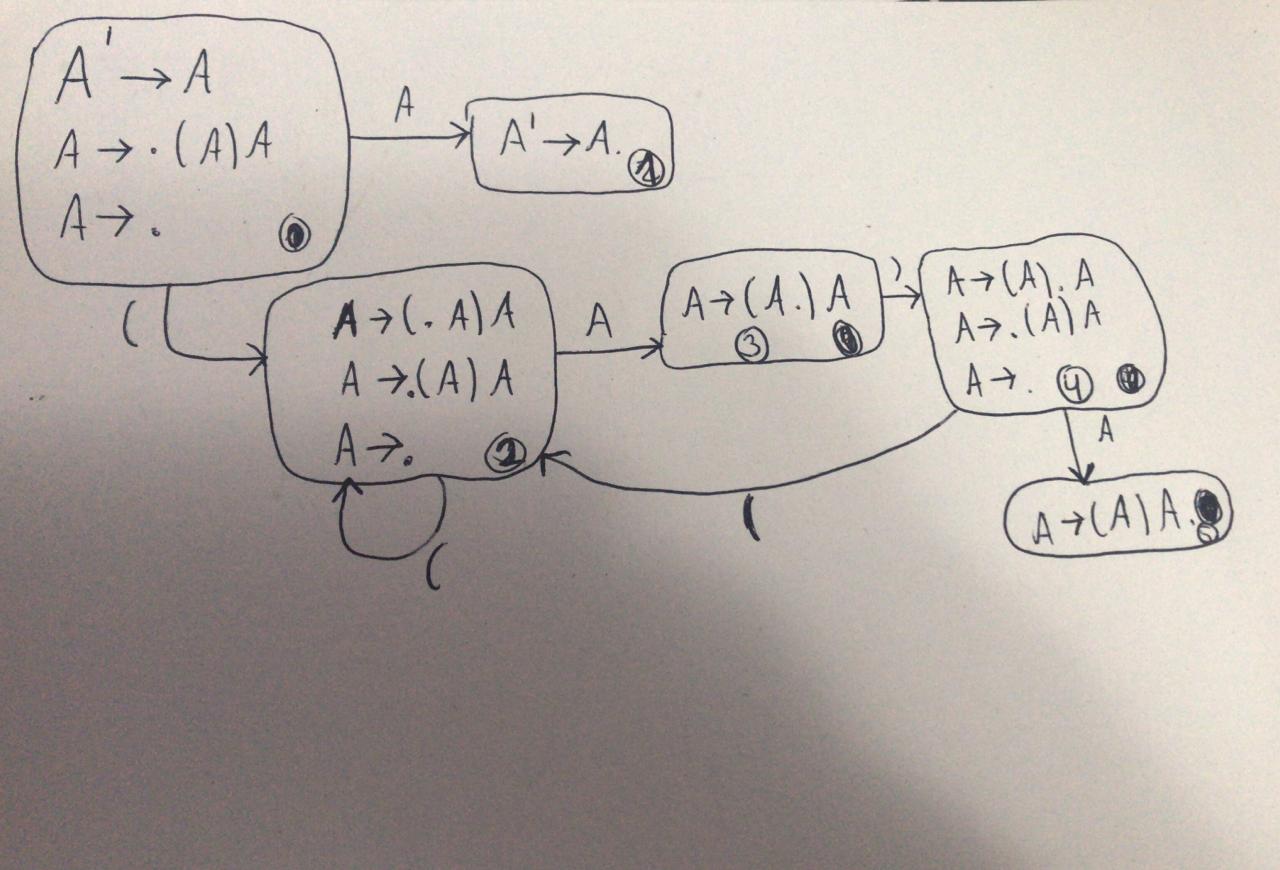 A' → A
A → . (A) A
A → .
A
A' → A. 1
(
A → (. A) A
A → .(A) A
A → . 2
A
A → (A.) A
3
)
A → (A). A
A → .(A) A
A → . 4
(
(
A
A → (A) A.